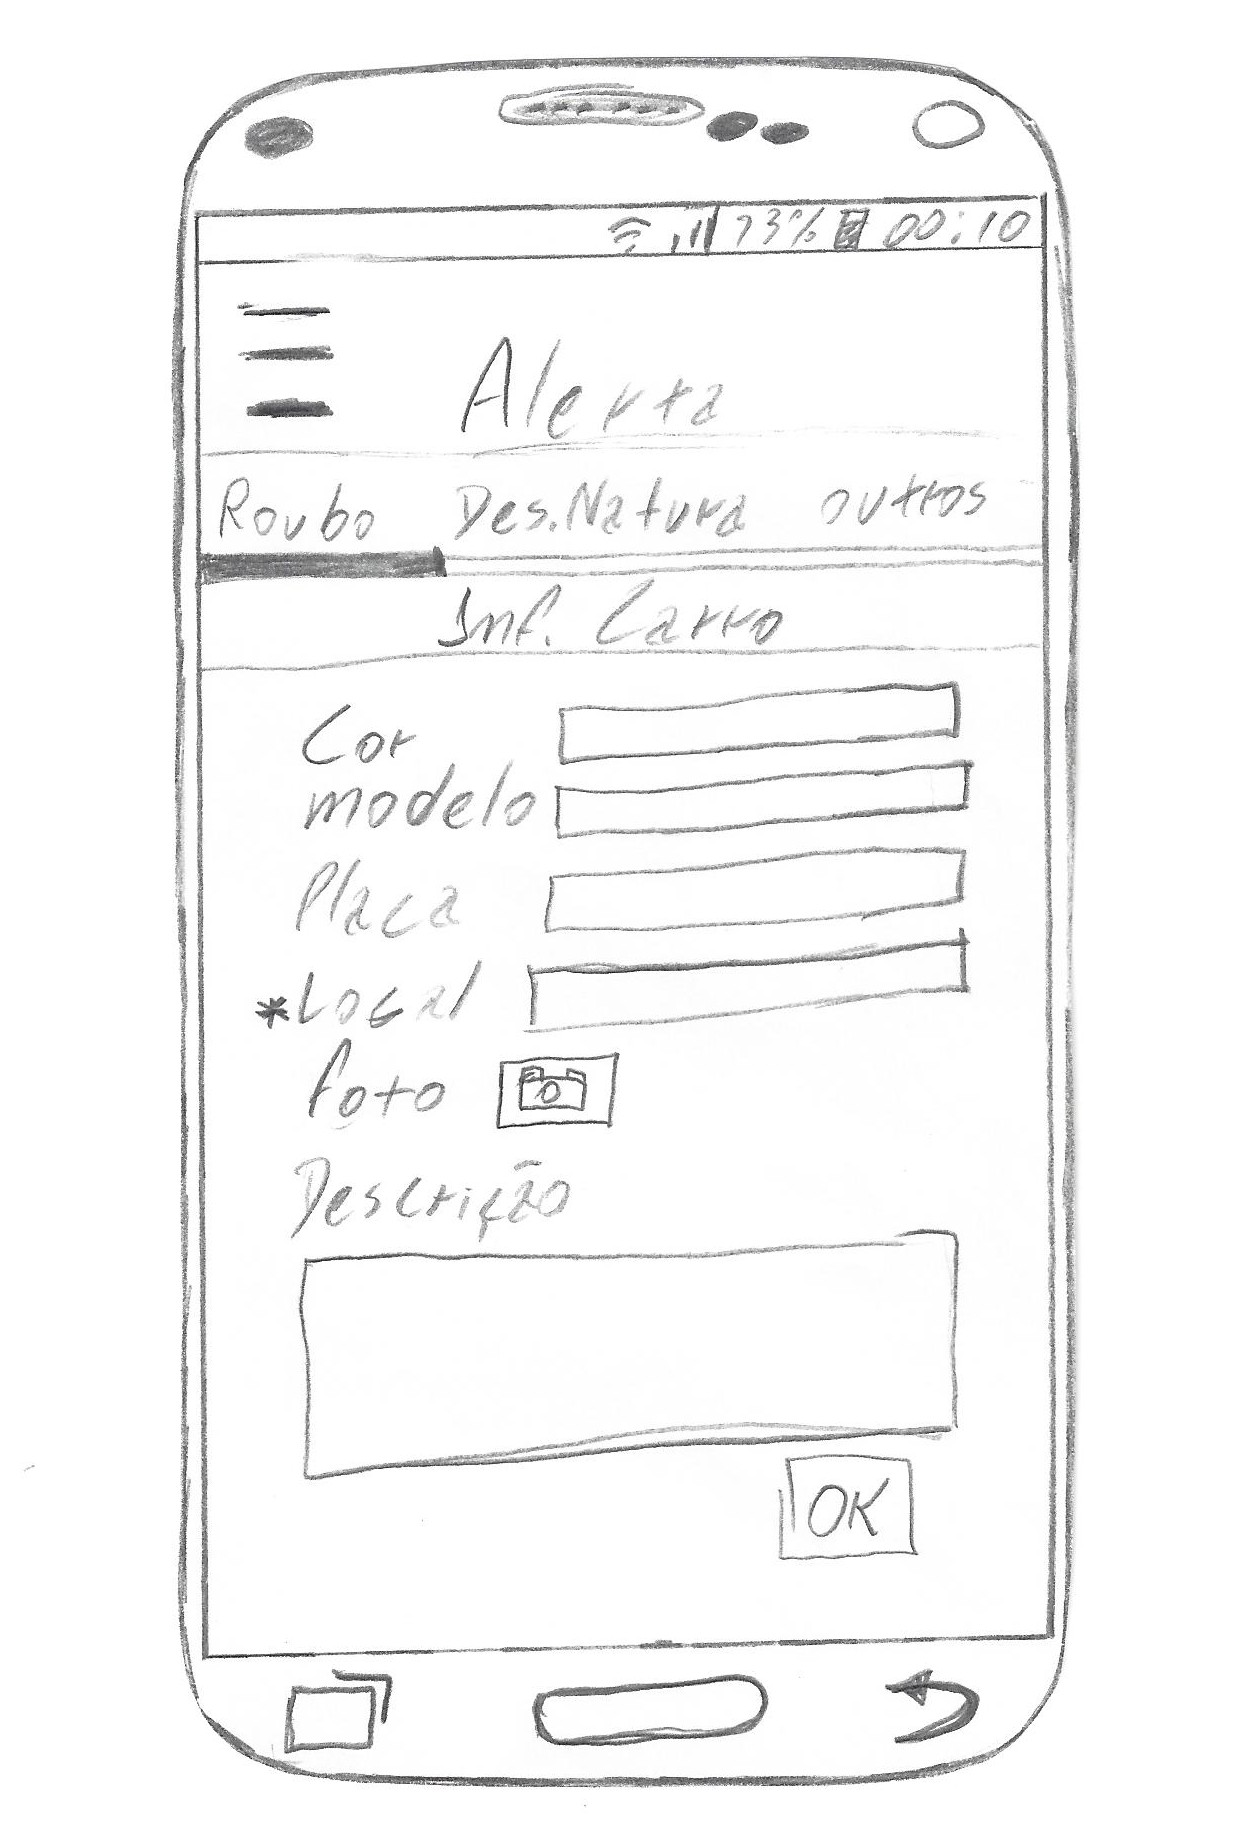 73% 00:10
Alerta
Roubo Des.Natura outros
Inf. Carro
Cor
modelo
Placa
*Local
foto
Descrição
OK